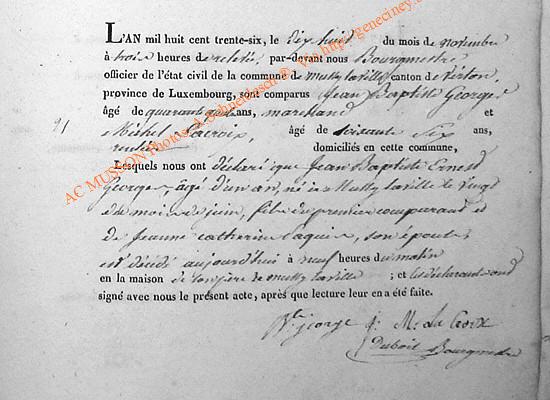 L'AN mil huit cent trente-six, le dix huit du mois de novembre
à trois heures de relevée, par-devant nous Bourgmestre
officier de l'état civil de la commune de Mussy la ville, canton de Virton,
province de Luxembourg, sont comparus Jean Baptiste George
âgé de quarante ans, marchand et
91
Michel Lacroix, âgé de soixante six ans,
rentier domiciliés en cette commune,
Lesquels nous ont déclaré que Jean Baptiste Ernest
George, âgé d'un an, né à Mussy la ville le vingt
du mois de juin, fils du premier comparant et
de Jeanne Catherine Jaquin, son épouse
est décédé aujourd'hui à neuf heures du matin
en la maison de son père de Mussy la ville ; et les déclarants ont
signé avec nous le présent acte, après que lecture leur en a été faite.
Bte George J. M. La Croix
Bourgmestre
AC MUSSON Photos A gohnebasch © Via http://geneciney